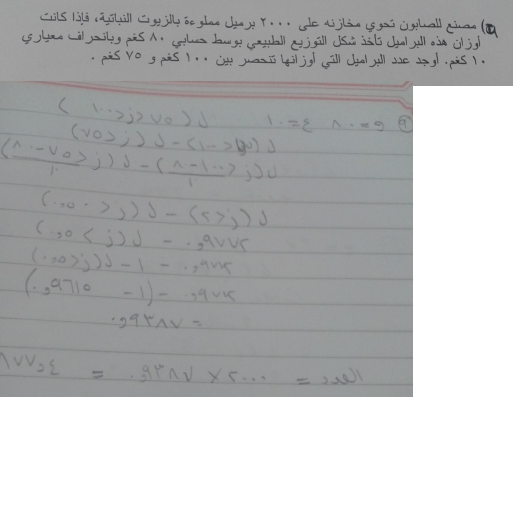 ٩) مصنع للصابون تحوي مخازنه على ٢٠٠٠ برميل مملوءة بالزيوت النباتية، فإذا كانت
أوزان هذه البراميل تأخذ شكل التوزيع الطبيعي بوسط حسابي ٨٠ كغم وبانحراف معياري
١٠ كغم. أوجد عدد البراميل التي أوزانها تنحصر بين ١٠٠ كغم و ٧٥ كغم .
٩ و = ٨٠ ع = ١٠ ل (٧٥ < ز < ١٠٠)
ل (ز < ١٠٠) - ل (ز < ٧٥)
ل (ز < ١٠٠ - ٨٠ / ١٠) - ل (ز < ٧٥ - ٨٠ / ١٠)
ل (ز < ٢) - ل (ز < -٠,٥)
٠,٩٧٧٢ - ل (ز > ٠,٥)
٠,٩٧٧٢ - ١ - ل (ز < ٠,٥)
٠,٩٧٧٢ - (١ - ٠,٩٦١٥)
= ٠,٩٣٨٧
العدد = ٢٠٠٠ × ٠,٩٣٨٧ = ١٨٧٧,٤